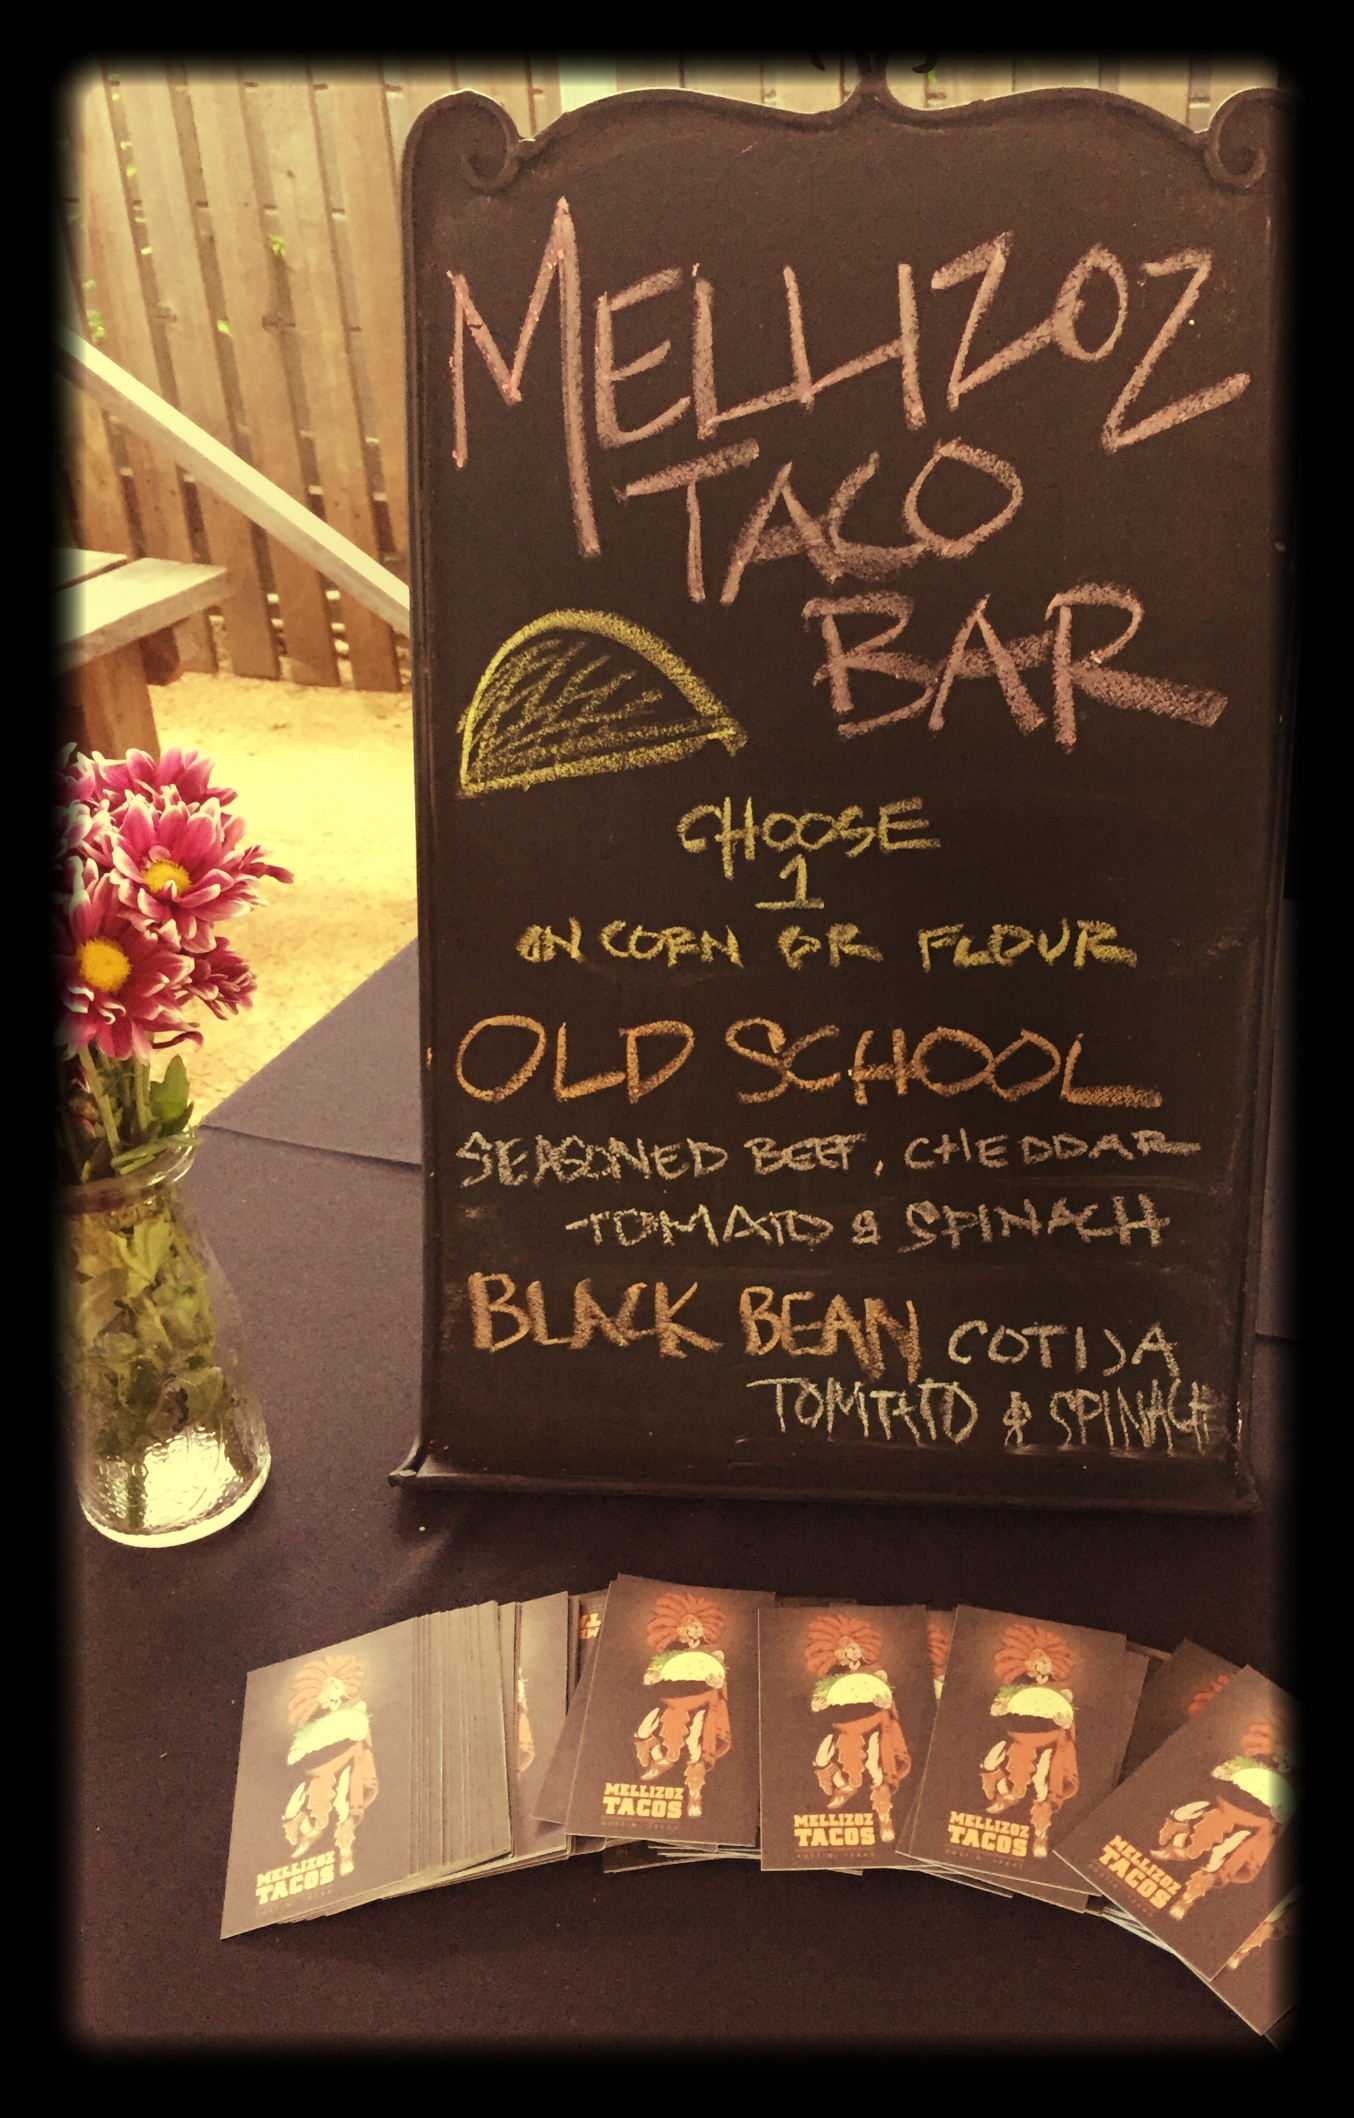 MELLIZOZ
TACO
BAR
CHOOSE
1
ON CORN OR FLOUR
OLD SCHOOL
SEASONED BEEF, CHEDDAR
TOMATO & SPINACH
BLACK BEAN COTIJA
TOMTATO & SPINACH
MELLIZOZ
TACOS
MELLIZOZ
TACOS
MELLIZOZ
TACOS
MELLIZOZ
TACOS
MELLIZOZ
TACOS